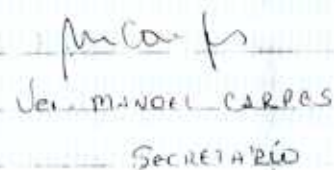 Ver. MANOEL CARPES
SECRETÁRIO